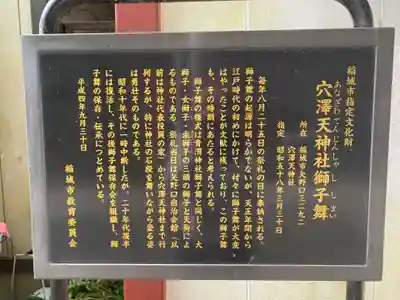 稲城市指定文化財
あなざわてんじんしゃししまい
穴澤天神社獅子舞
所在 稲城市矢野口三二九二
穴澤天神社
指定 昭和五十八年三月三十日
毎年八月二十五日の祭礼の日に奉納される。
獅子舞の起源は明らかでないが、天正年間から
江戸時代の初めにかけて、村々に獅子舞が大変
はやったことが文献に残っており、この獅子舞
も、その時期にあたると考えられる。
獅子舞の様式は青渭神社獅子舞と同じく、大
獅子・女獅子・求獅子の三頭の獅子と天狗によ
るものである。祭礼当日は矢野口自治会館(以
前は神社代表役員の家)から穴澤天神社まで行
列するが、特に神社の石段を舞いながら登る姿
は勇壮そのものである。
昭和十年代に一時中断したが、二十年代後半
には復活し、その後獅子舞保存会を組織し、獅
子舞の保存・伝承につとめている。
平成四年九月三十日
稲城市教育委員会